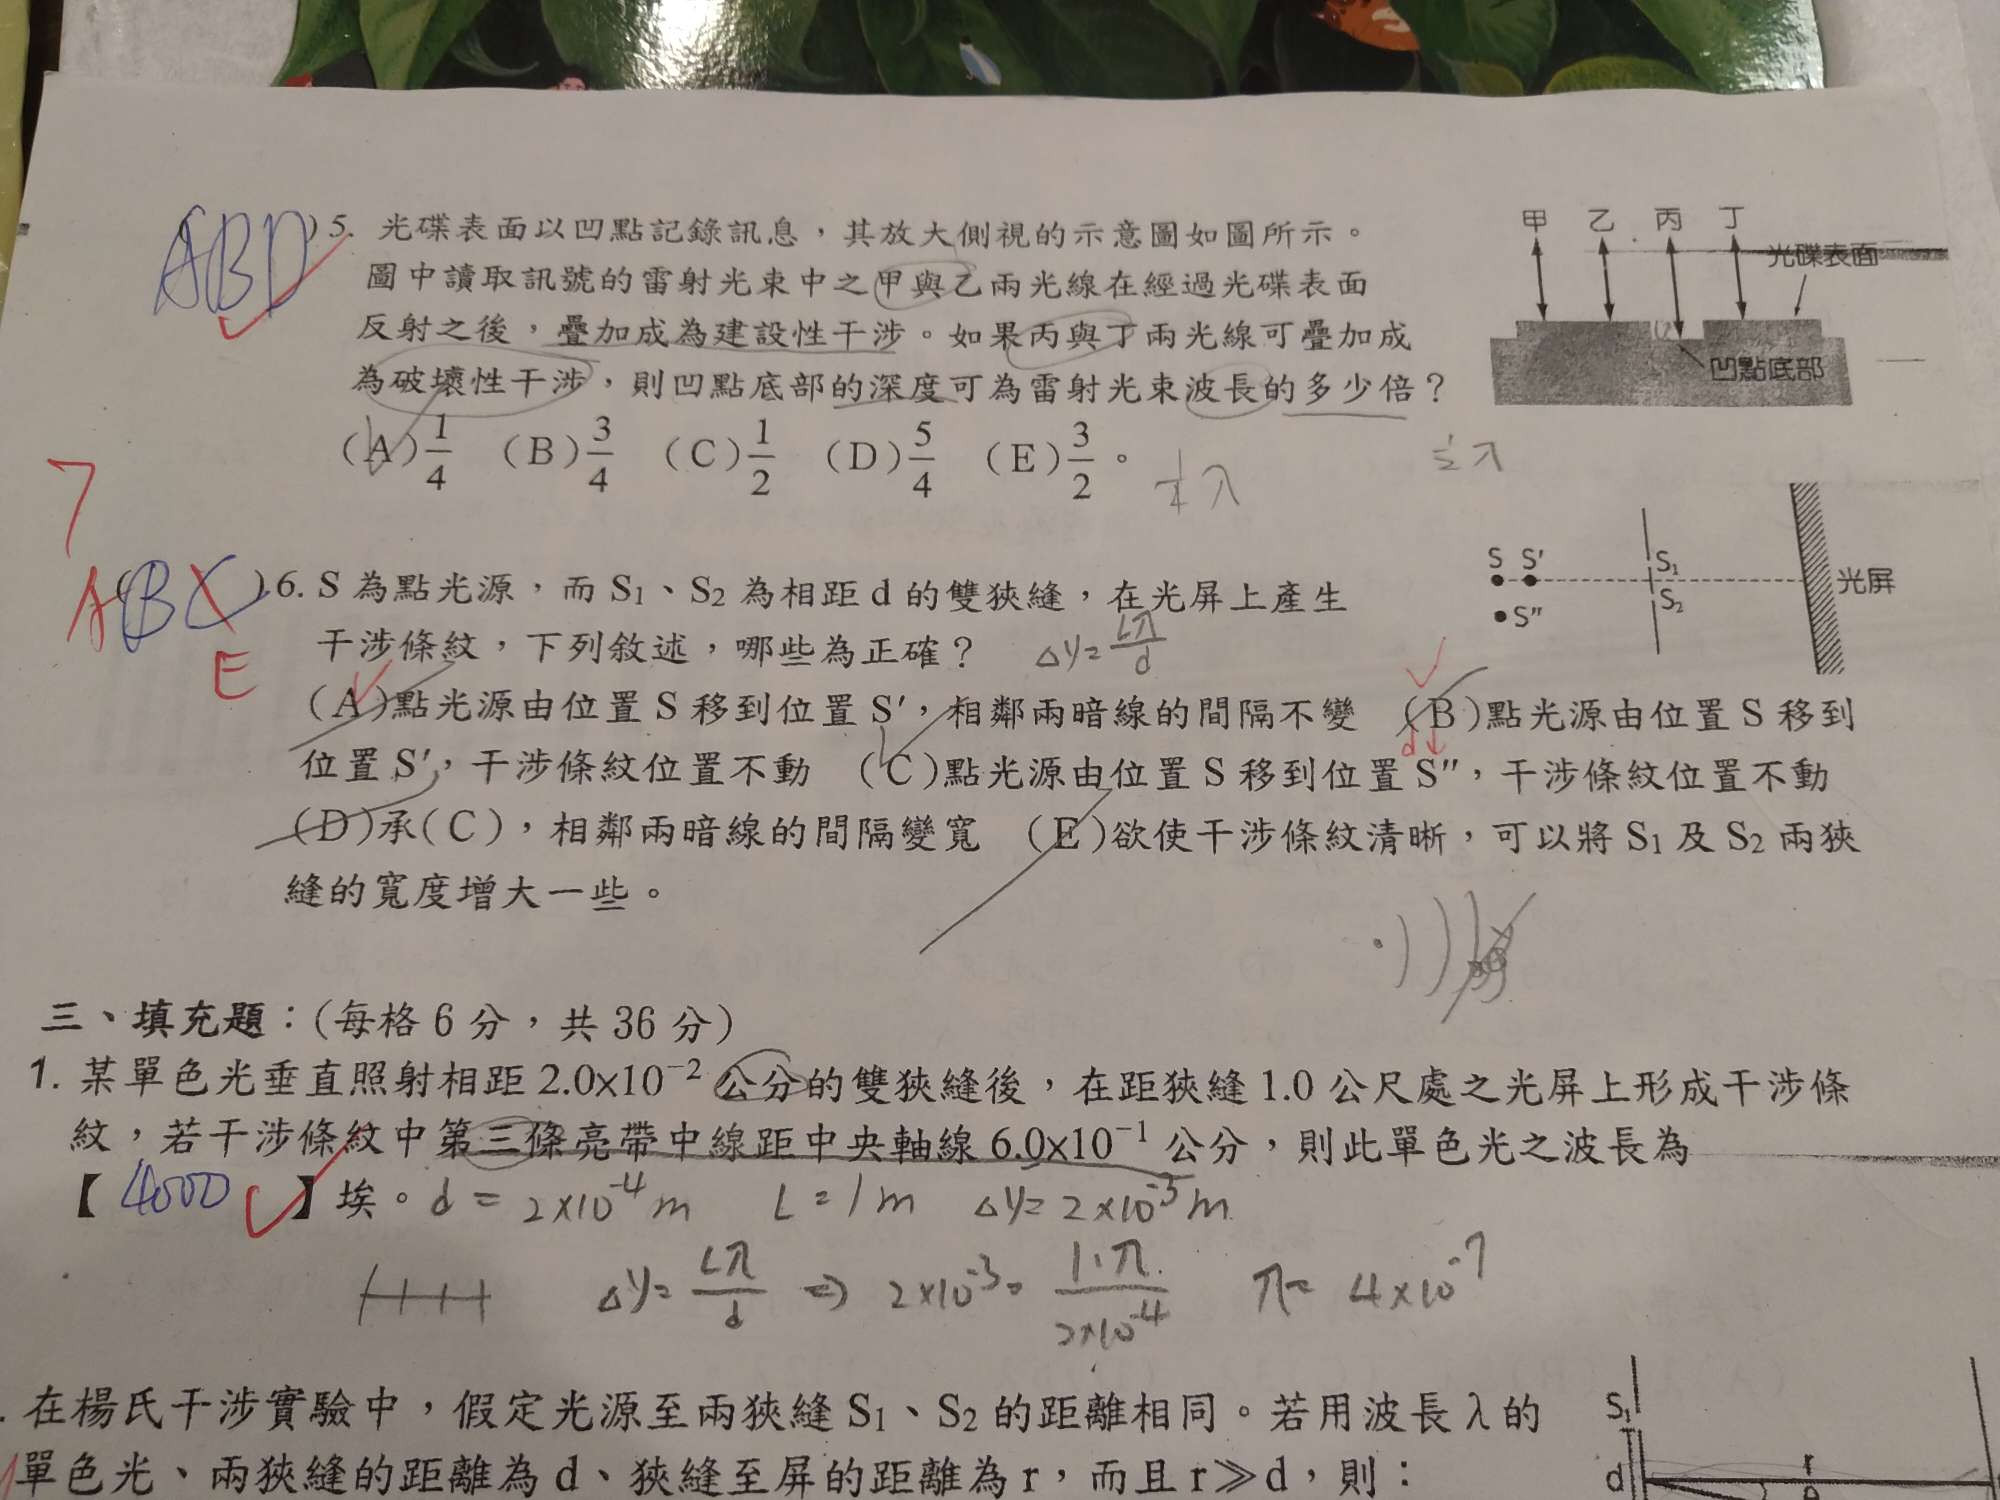 ABD
)5. 光碟表面以凹點記錄訊息，其放大側視的示意圖如圖所示。
圖中讀取訊號的雷射光束中之甲與乙兩光線在經過光碟表面
反射之後，疊加成為建設性干涉。如果丙與丁兩光線可疊加成
為破壞性干涉，則凹點底部的深度可為雷射光束波長的多少倍？
(A)1/4 (B)3/4 (C)1/2 (D)5/4 (E)3/2。
甲 乙 丙 丁
光碟表面
凹點底部
½λ
7
A(BC
E
)6. S 為點光源，而 S₁、S₂ 為相距 d 的雙狹縫，在光屏上產生
干涉條紋，下列敘述，哪些為正確？ Δy=Lλ/d
(A)點光源由位置 S 移到位置 S′，相鄰兩暗線的間隔不變 (B)點光源由位置 S 移到
位置 S′，干涉條紋位置不動 (C)點光源由位置 S 移到位置 S″，干涉條紋位置不動
(D)承(C)，相鄰兩暗線的間隔變寬 (E)欲使干涉條紋清晰，可以將 S₁ 及 S₂ 兩狹
縫的寬度增大一些。
d↓
S S′
S″
S₁
S₂
光屏
三、填充題：(每格 6 分，共 36 分)
1. 某單色光垂直照射相距 2.0×10⁻² 公分的雙狹縫後，在距狹縫 1.0 公尺處之光屏上形成干涉條
紋，若干涉條紋中第三條亮帶中線距中央軸線 6.0×10⁻¹ 公分，則此單色光之波長為
【 4000 】埃。 d = 2×10⁻⁴ m L = 1m Δy = 2×10⁻³ m
Δy = Lλ/d ⇒ 2×10⁻³ = 1·λ/2×10⁻⁴ λ = 4×10⁻⁷
. 在楊氏干涉實驗中，假定光源至兩狹縫 S₁、S₂ 的距離相同。若用波長 λ 的
單色光、兩狹縫的距離為 d、狹縫至屏的距離為 r，而且 r≫d，則：
S₁
d
r
θ